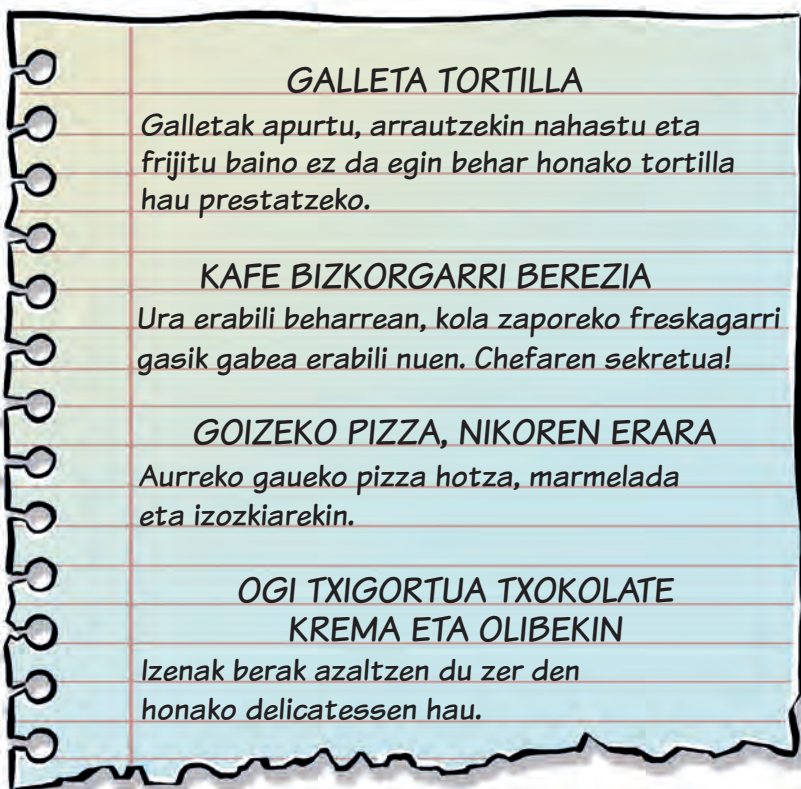 GALLETA TORTILLA
Galletak apurtu, arrautzekin nahastu eta
frijitu baino ez da egin behar honako tortilla
hau prestatzeko.
KAFE BIZKORGARRI BEREZIA
Ura erabili beharrean, kola zaporeko freskagarri
gasik gabea erabili nuen. Chefaren sekretua!
GOIZEKO PIZZA, NIKOREN ERARA
Aurreko gaueko pizza hotza, marmelada
eta izozkiarekin.
OGI TXIGORTUA TXOKOLATE
KREMA ETA OLIBEKIN
Izenak berak azaltzen du zer den
honako delicatessen hau.